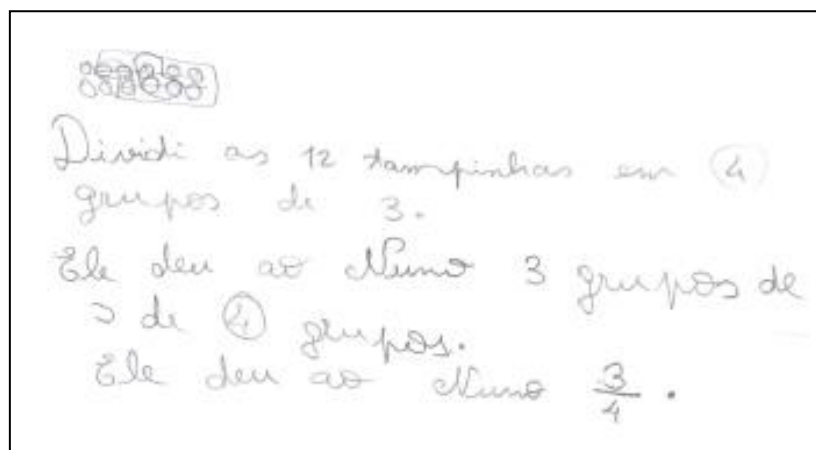 Dividi as 12 tampinhas em 4
grupos de 3.
Ele deu ao Nuno 3 grupos de
3 de 4 grupos.
Ele deu ao Nuno 3/4.